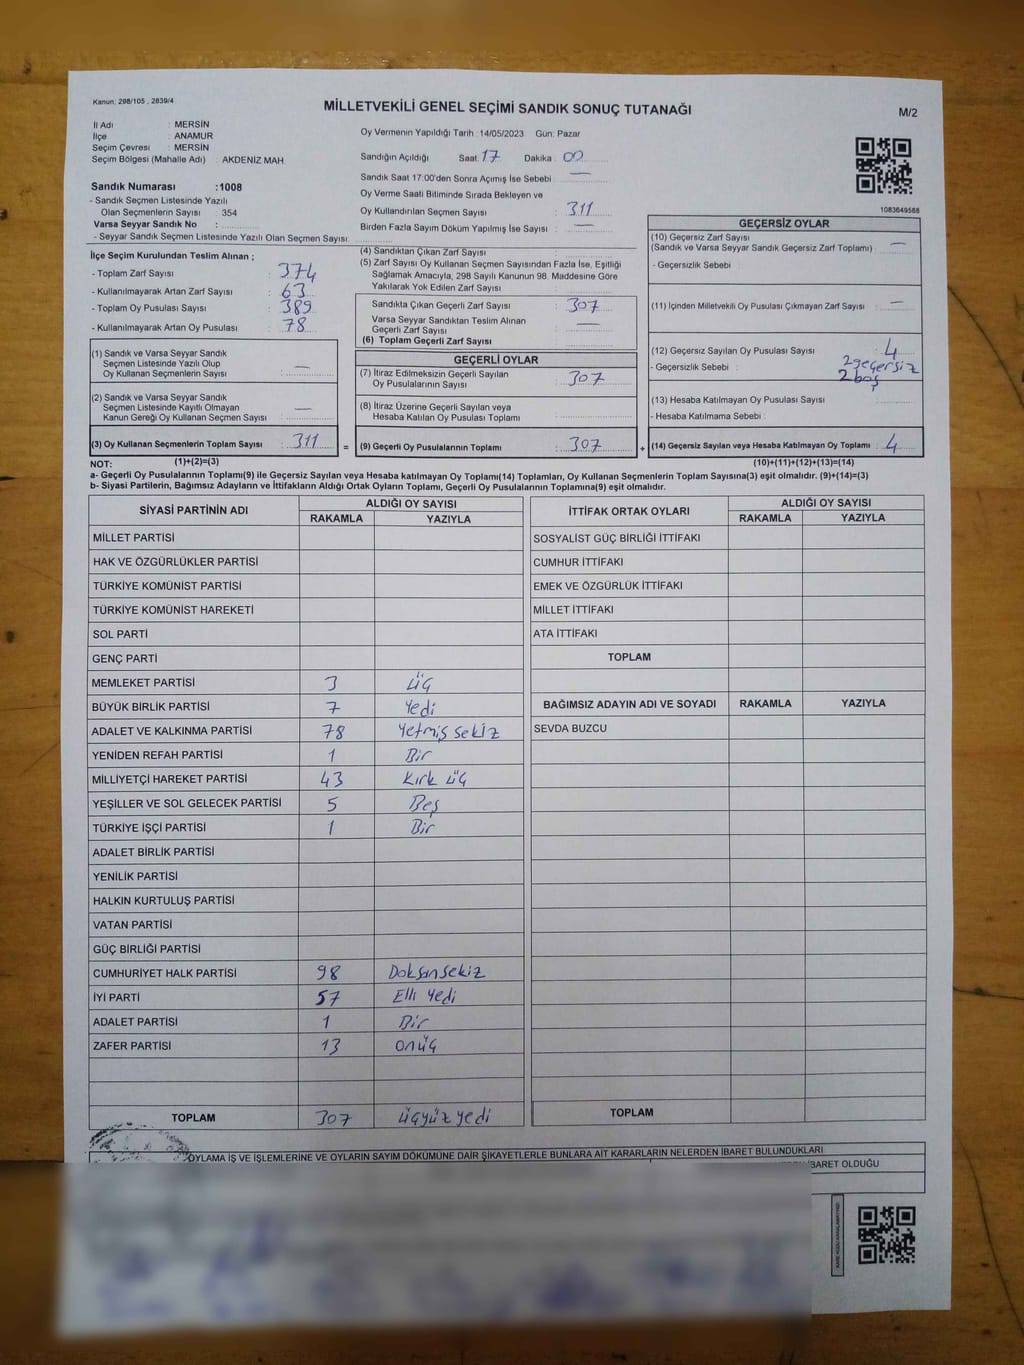 Kanun: 298/105 , 2839/4
MİLLETVEKİLİ GENEL SEÇİMİ SANDIK SONUÇ TUTANAĞI
M/2
İl Adı : MERSİN
İlçe : ANAMUR
Seçim Çevresi : MERSİN
Seçim Bölgesi (Mahalle Adı) : AKDENİZ MAH.
Sandık Numarası :1008
- Sandık Seçmen Listesinde Yazılı
Olan Seçmenlerin Sayısı : 354
Varsa Seyyar Sandık No :
- Seyyar Sandık Seçmen Listesinde Yazılı Olan Seçmen Sayısı:
Oy Vermenin Yapıldığı Tarih : 14/05/2023 Gün: Pazar
Sandığın Açıldığı Saat: 17 Dakika : 00
Sandık Saat 17:00'den Sonra Açımış İse Sebebi : —
Oy Verme Saati Bitiminde Sırada Bekleyen ve
Oy Kullandırılan Seçmen Sayısı : 311
Birden Fazla Sayım Döküm Yapılmış İse Sayısı : —
1083649588
İlçe Seçim Kurulundan Teslim Alınan ;
- Toplam Zarf Sayısı : 374
- Kullanılmayarak Artan Zarf Sayısı : 63
- Toplam Oy Pusulası : 389
- Kullanılmayarak Artan Oy Pusulası : 78
(1) Sandık ve Varsa Seyyar Sandık
Seçmen Listesinde Yazılı Olup
Oy Kullanan Seçmenlerin Sayısı : —
(2) Sandık ve Varsa Seyyar Sandık
Seçmen Listesinde Kayıtlı Olmayan
Kanun Gereği Oy Kullanan Seçmen Sayısı : —
(3) Oy Kullanan Seçmenlerin Toplam Sayısı : 311
(1)+(2)=(3)
(4) Sandıktan Çıkan Zarf Sayısı :
(5) Zarf Sayısı Oy Kullanan Seçmen Sayısından Fazla İse, Eşitliği
Sağlamak Amacıyla, 298 Sayılı Kanunun 98. Maddesine Göre
Yakılarak Yok Edilen Zarf Sayısı :
Sandıkta Çıkan Geçerli Zarf Sayısı : 307
Varsa Seyyar Sandıktan Teslim Alınan
Geçerli Zarf Sayısı : —
(6) Toplam Geçerli Zarf Sayısı :
GEÇERLİ OYLAR
(7) İtiraz Edilmeksizin Geçerli Sayılan
Oy Pusulalarının Sayısı : 307
(8) İtiraz Üzerine Geçerli Sayılan veya
Hesaba Katılan Oy Pusulası Toplamı :
= (9) Geçerli Oy Pusulalarının Toplamı : 307 +
GEÇERSİZ OYLAR
(10) Geçersiz Zarf Sayısı
(Sandık ve Varsa Seyyar Sandık Geçersiz Zarf Toplamı) : —
- Geçersizlik Sebebi :
(11) İçinden Milletvekili Oy Pusulası Çıkmayan Zarf Sayısı : —
(12) Geçersiz Sayılan Oy Pusulası Sayısı : 4
- Geçersizlik Sebebi : 2 geçersiz
2 boş
(13) Hesaba Katılmayan Oy Pusulası Sayısı :
- Hesaba Katılmama Sebebi :
(14) Geçersiz Sayılan veya Hesaba Katılmayan Oy Toplamı : 4
(10)+(11)+(12)+(13)=(14)
NOT:
a- Geçerli Oy Pusulalarının Toplamı(9) ile Geçersiz Sayılan veya Hesaba katılmayan Oy Toplamı(14) Toplamları, Oy Kullanan Seçmenlerin Toplam Sayısına(3) eşit olmalıdır. (9)+(14)=(3)
b- Siyasi Partilerin, Bağımsız Adayların ve İttifakların Aldığı Ortak Oyların Toplamı, Geçerli Oy Pusulalarının Toplamına(9) eşit olmalıdır.
SİYASİ PARTİNİN ADI ALDIĞI OY SAYISI
RAKAMLA YAZIYLA
MİLLET PARTİSİ
HAK VE ÖZGÜRLÜKLER PARTİSİ
TÜRKİYE KOMÜNİST PARTİSİ
TÜRKİYE KOMÜNİST HAREKETİ
SOL PARTİ
GENÇ PARTİ
MEMLEKET PARTİSİ 3 üç
BÜYÜK BİRLİK PARTİSİ 7 Yedi
ADALET VE KALKINMA PARTİSİ 78 Yetmiş sekiz
YENİDEN REFAH PARTİSİ 1 Bir
MİLLİYETÇİ HAREKET PARTİSİ 43 Kırk üç
YEŞİLLER VE SOL GELECEK PARTİSİ 5 Beş
TÜRKİYE İŞÇİ PARTİSİ 1 Bir
ADALET BİRLİK PARTİSİ
YENİLİK PARTİSİ
HALKIN KURTULUŞ PARTİSİ
VATAN PARTİSİ
GÜÇ BİRLİĞİ PARTİSİ
CUMHURİYET HALK PARTİSİ 98 Doksansekiz
İYİ PARTİ 57 Elli Yedi
ADALET PARTİSİ 1 Bir
ZAFER PARTİSİ 13 onüç
TOPLAM 307 üçyüz yedi
İTTİFAK ORTAK OYLARI ALDIĞI OY SAYISI
RAKAMLA YAZIYLA
SOSYALİST GÜÇ BİRLİĞİ İTTİFAKI
CUMHUR İTTİFAKI
EMEK VE ÖZGÜRLÜK İTTİFAKI
MİLLET İTTİFAKI
ATA İTTİFAKI
TOPLAM
BAĞIMSIZ ADAYIN ADI VE SOYADI RAKAMLA YAZIYLA
SEVDA BUZCU
TOPLAM
OYLAMA İŞ VE İŞLEMLERİNE VE OYLARIN SAYIM DÖKÜMÜNE DAİR ŞİKAYETLERLE BUNLARA AİT KARARLARIN NELERDEN İBARET BULUNDUKLARI
İBARET OLDUĞU